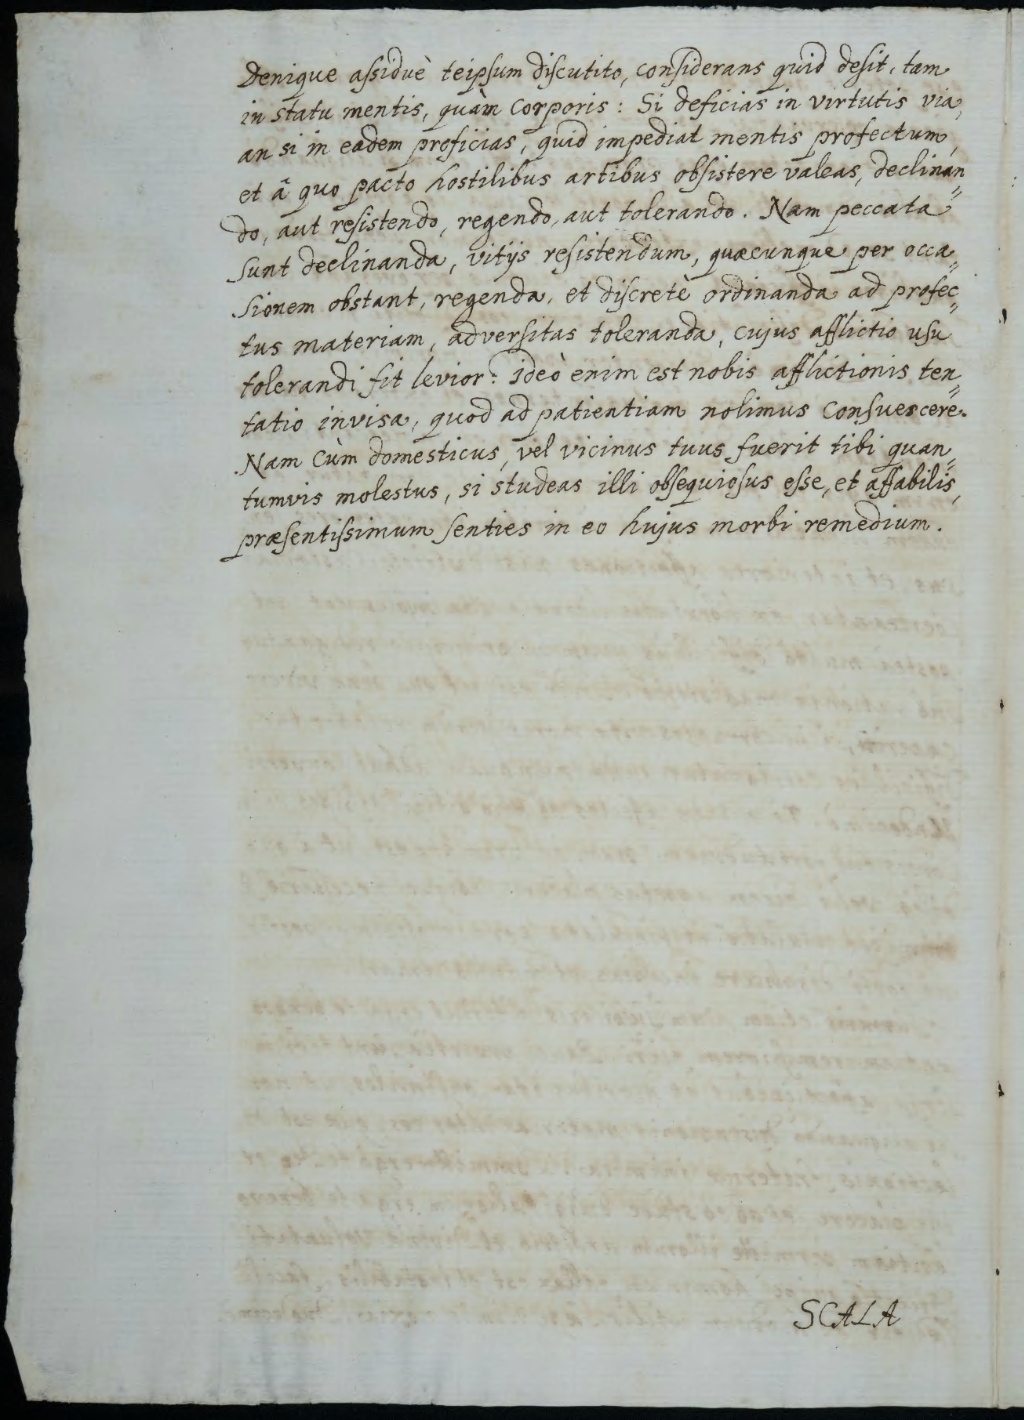 Denique assiduè teipsum discutito, considerans quid desit, tam
in statu mentis, quàm corporis: Si deficias in virtutis via,
an si in eadem proficias, quid impediat mentis profectum,
et â quo pacto hostilibus artibus obsistere valeas, declinan=
do, aut resistendo, regendo, aut tolerando. Nam peccata
sunt declinanda, vitijs resistendum, quæcunque per occa=
sionem obstant, regenda, et discretè ordinanda ad profec=
tus materiam, adversitas toleranda, cujus afflictio usu
tolerandi fit levior: ideò enim est nobis afflictionis ten=
tatio invisa, quod ad patientiam nolimus consuescere.
Nam cùm domesticus, vel vicinus tuus fuerit tibi quan=
tumvis molestus, si studeas illi obsequiosus esse, et affabilis,
præsentissimum senties in eo hujus morbi remedium.
SCALA